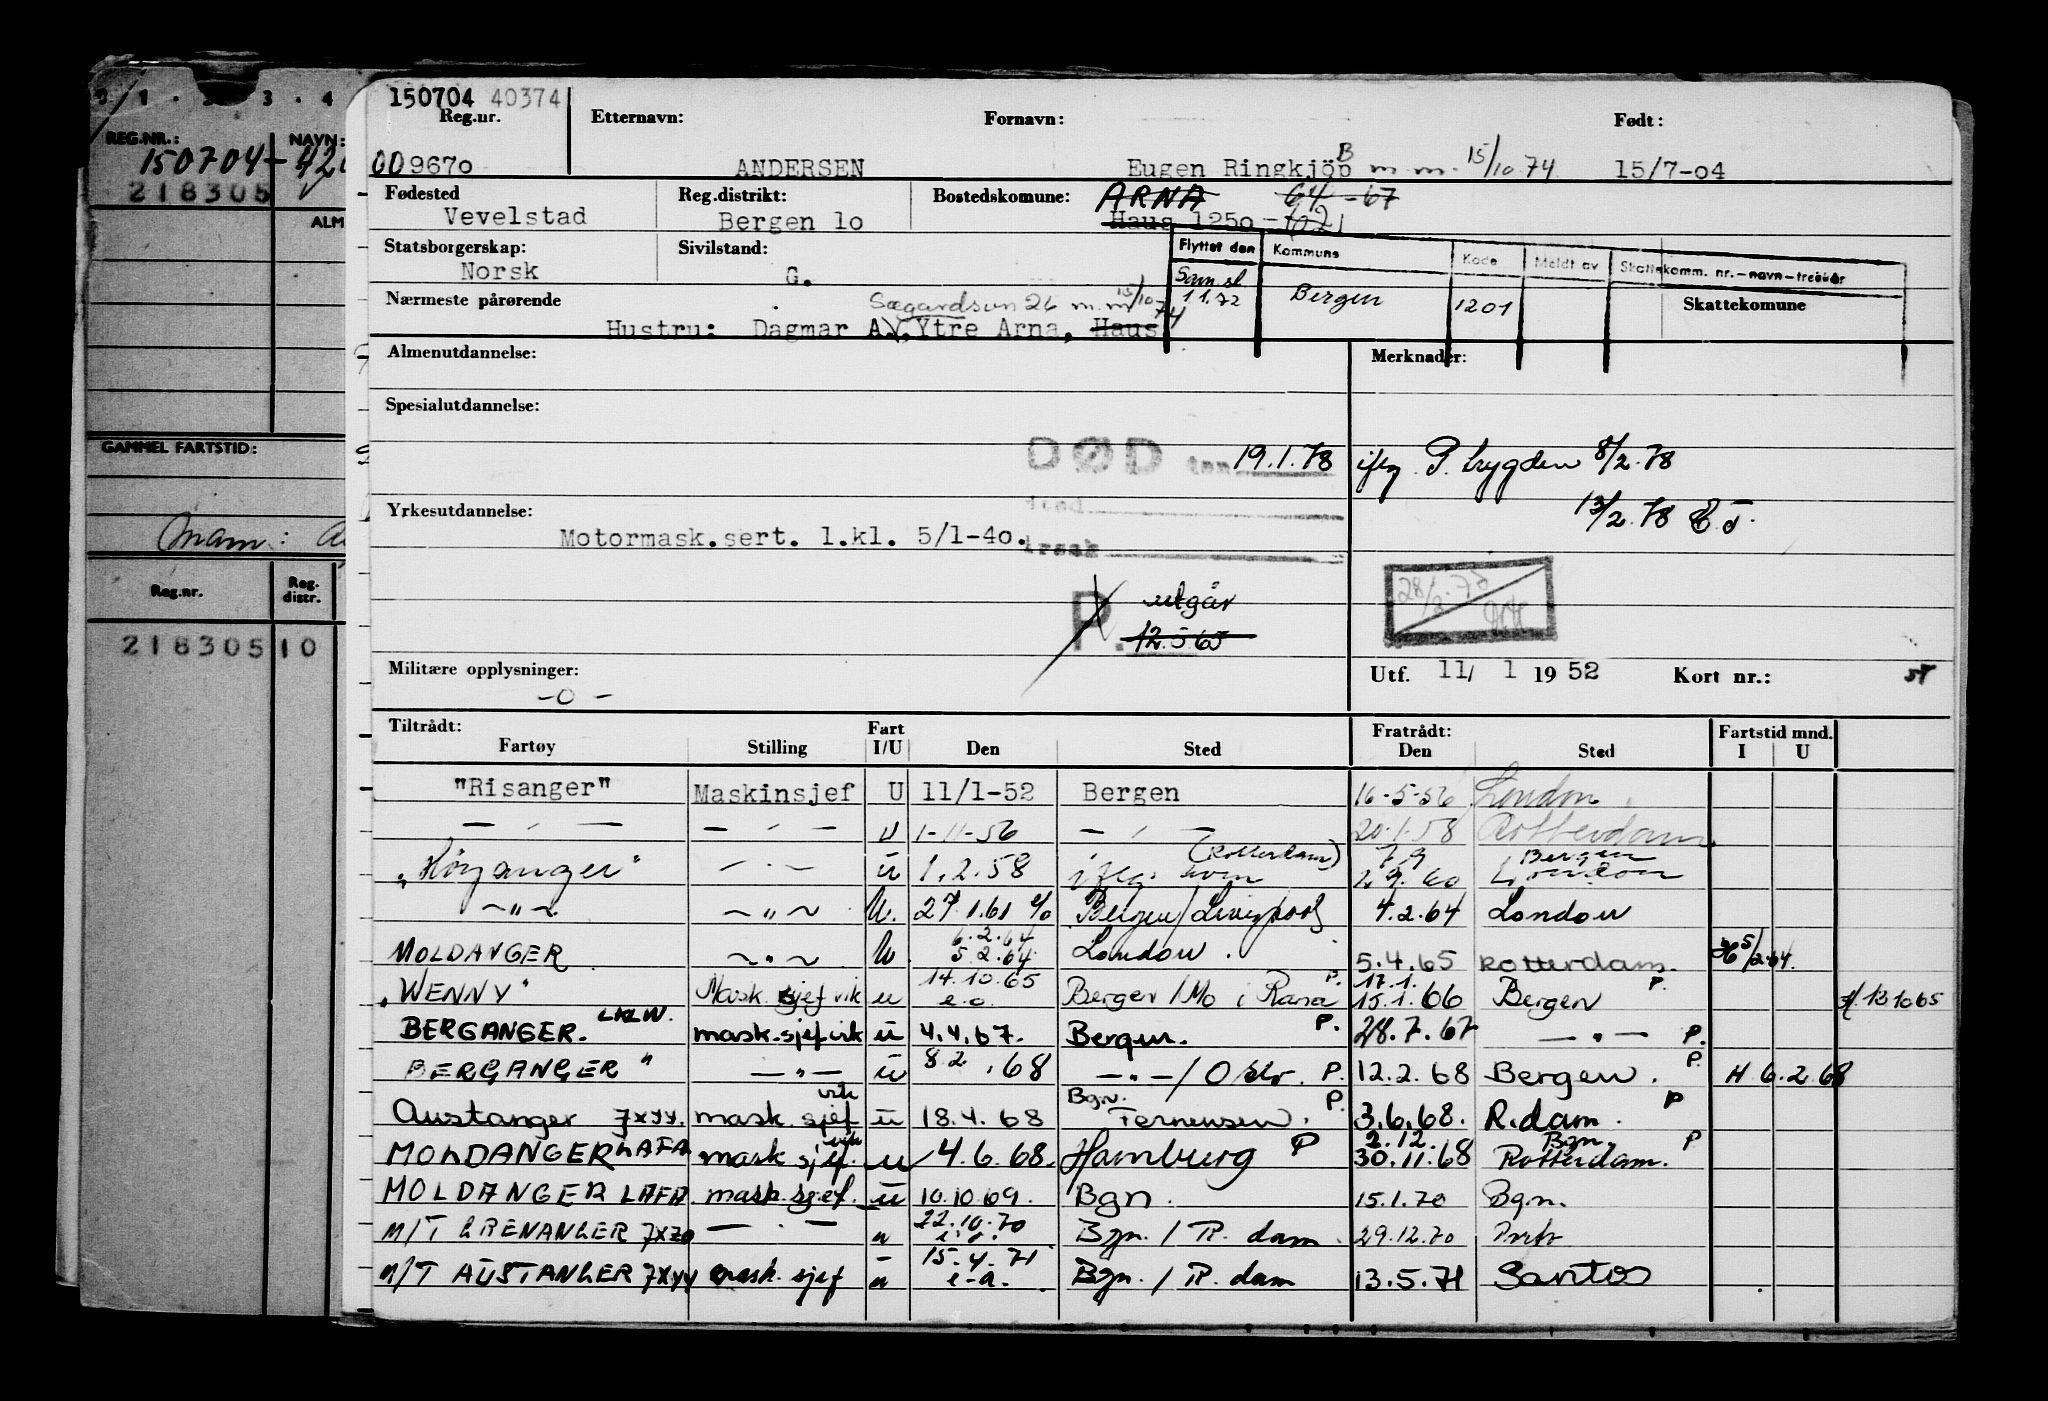 0 1 · 2 · 3 · 4
REG.NR.: NAVN:
150704-42
218305
ALM
GAMMEL FARTSTID:
Mam:
Reg.nr. Reg. distr.
218305 10
150704 40374
Reg.nr. Etternavn: Fornavn: Født:
009670 ANDERSEN Eugen Ringkjöb B m m. 15/10 74 15/7-04
Fødested Reg.distrikt: Bostedskomune: ARNA 64-67
Vevelstad Bergen 1o Haus 125o-621
Statsborgerskap: Sivilstand: Flyttet den Kommune Kode Meldt av Skattekomm. nr.-navn-trekkår
Norsk G. Sam sl 11.72 Bergen 1201
Nærmeste pårørende Sægardsvn 26 m.m 15/10 74 Skattekomune
Hustru: Dagmar A., Ytre Arna, Haus
Almenutdannelse: Merknader:
Spesialutdannelse:
DØD den 19.1.78 iflg. P. trygden 8/2.78
sted
13/2.78 E.T.
Yrkesutdannelse:
Motormask.sert. 1.kl. 5/1-4o. årsak
28/2.75
P. utgår
12.5.65
Militære opplysninger: Utf. 11/ 1 19 52 Kort nr.:
-0-
Tiltrådt: Fart Fratrådt: Fartstid mnd.
Fartøy Stilling I/U Den Sted Den Sted I U
"Risanger" Maskinsjef U 11/1-52 Bergen 16-5-56 London
— " — — " — U 1-11-56 — " — 20.1.58 Rotterdam
"Høyanger" — " — u 1.2.58 iflg. hvm (Rotterdam) 7.9 2.9.60 Bergen London
— " — — " — U. 27.1.61 Bergen/Liverpool 4.2.64 London
MOLDANGER — " — U. 6.2.64 5.2.64 London. 5.4.65 Rotterdam. H 5/2.64.
"WENNY" Mask.sjef vik u 14.10.65 e.o. Bergen/Mo i Rana P. 17.1. 15.1.66 Bergen P. H. 13 10 65
BERGANGER. LKLW. mask.sjef vik u 4.4.67. Bergen. P. 28.7.67 — " — P.
BERGANGER " — " — u 8.2.68 — " —/Oslo. P. 12.2.68 Bergen. P. H 6.2.68
Austanger JXYY. mask. sjef vik u 18.4.68 Bgn. Ferneusen. P. 3.6.68. R.dam. P
MOLDANGER LAFA mask sjef. vik u 4.6.68. Hamburg P 2.12. 30.11.68 Bgn. Rotterdam. P
MOLDANGER LAFA mask.sjef. u 10.10.69. Bgn. 15.1.70 Bgn.
M/T GRENANGER JXZO — " — u 22.10.70 e.o. Bgn. / R. dam. 29.12.70
M/T AUSTANGER JXYY mask. sjef u 15.4.71 e-a. Bgn. / R. dam 13.5.71 Santos